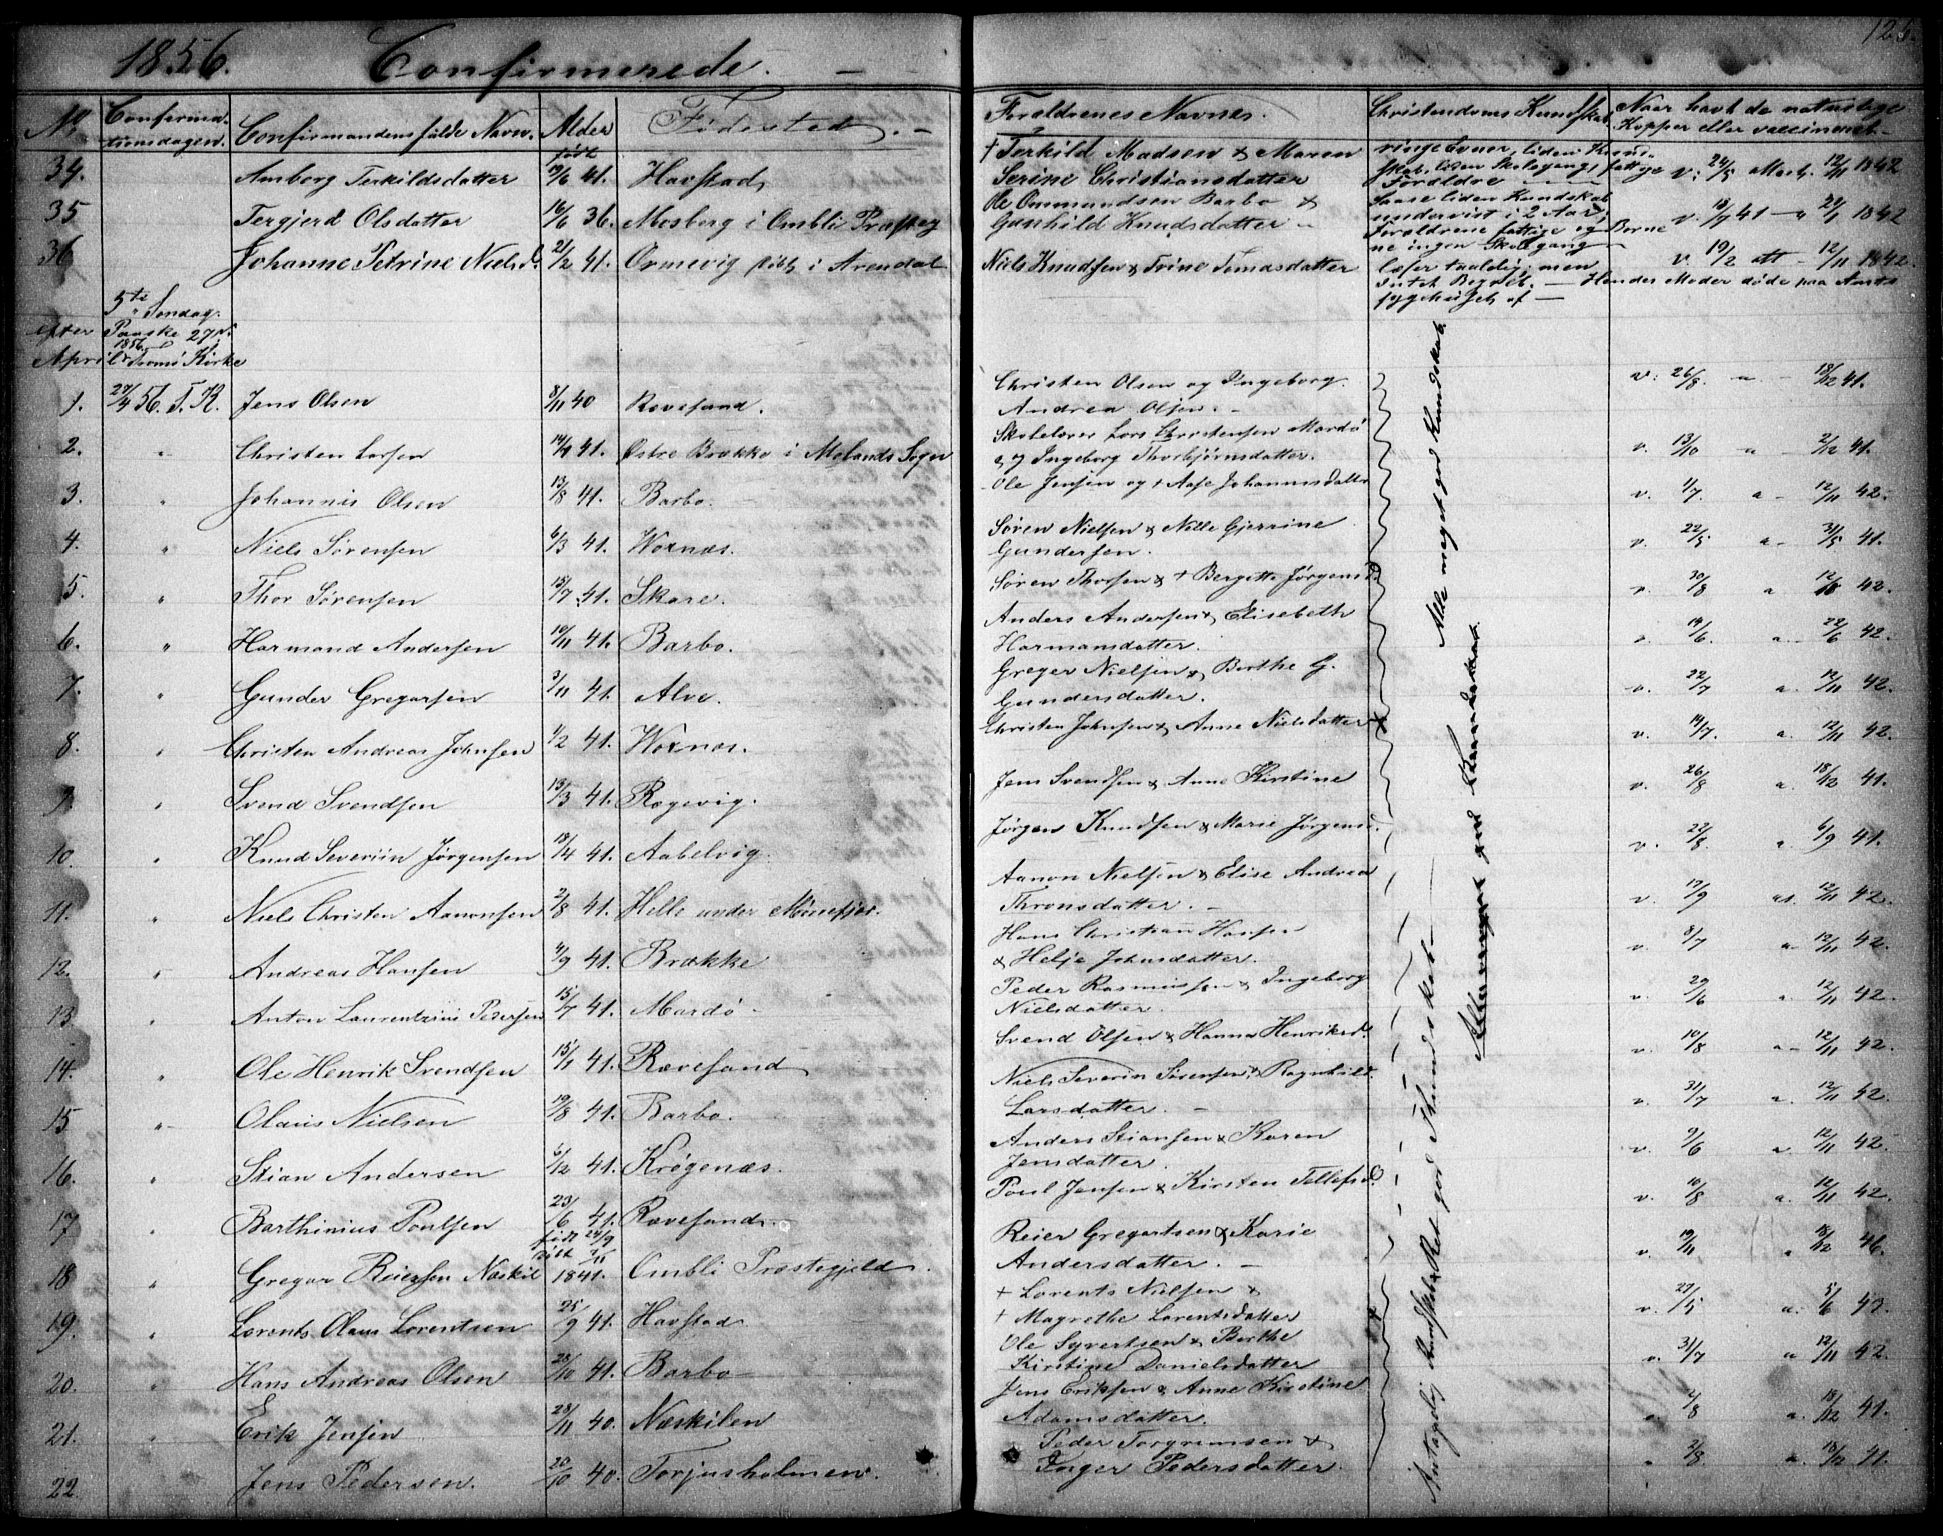 1856. Confirmerede. 125.
No Confirma- Confirmandens fulde Navn. Alder Fødested. Forældrenes Navne. Christendoms Kundskab. Naar havt de naturlige
tionsdagen. født Kopper eller vaccineret.
34. Amborg Terkildsdatter 41. Havstad † Terkild Madsen & Maren
Serine Christiansdatter ringe Evner, liden Kund-
skab, liden Skolegang, fattige
Forældre v. 24/5 12/11 1842
35 Tergjerd Olsdatter 16/6 36. Mosberg i Ombli Præsteg Ole Ommundsen Barbo &
Gunhild Knudsdatter liden Kundskab
undervist i 2 Aar,
Forældrene fattige og Børne
ne ingen Skolegang 1842
36 Johanne Petrine Nielsd. 21/2 41. Ormevig født i Arendal Niels Knudsen & Trine Tomasdatter læser taalelig, men
intet Begreb. — Hendes Moder døde paa Amts
sygehuset v. 19/2 att — 12/11 1842.
5te Søndag
efter Paaske 27.
1856
April Tromø Kirke
1. 27/4 56. T. K. Jens Olsen 8/11 40 Revesand. Christen Olsen og Ingeborg
Andrea Olsen. v. 26/8 a 18/12 41.
2. " Christen Larsen 14/4 41. Østre Brække i Molands Sogn Skolelærer Lars Christensen Mardø
og Ingeborg Thorbjørnsdatter. v. 13/10 a 2/12 41.
3. " Johannis Olsen 13/8 41. Barbo. Ole Jensen og † Aase Johannisdatter v. 1/7. a 12/11 42.
4. " Niels Sørensen 6/3 41. Woxnæs. Søren Nielsen & Nille Gjerrine
Gundersen. v. 22/5 a 31/5 41.
5. " Thor Sørensen 15/7 41. Skare. Søren Thorsen & † Bergitte Jørgensd. v. 30/8 a 42.
6. " Harmand Andersen 10/11 41. Barbo. Anders Andersen & Elisebeth
Harmansdatter. 14/6. a 22/6 42.
7. " Gunder Gregersen 3/11 41. Alve. Greger Nielsen & Berthe G.
Gundersdatter. v. 22/7 a. 12/11 42.
8. " Christen Andreas Johnsen 1/2 41. Woxnæs. Christen Johnsen & Anne Nielsdatter v. 14/7. a. 12/11 42.
9. " Svend Svendsen 13/3 41. Røgevig. Jens Svendsen & Anne Kirstine v. 26/8 a. 18/12 41.
10. " Knud Severiin Jørgensen 18/4 41. Aabelvig. Jørgen Knudsen & Marie Jørgensd. v. 22/8 a 6/9 41.
11. " Niels Christen Aanonsen 2/8 41. Helle under Aanon Nielsen & Elise Andrea
Thronsdatter. v. 17/9 a. 12/11 42.
12. " Andreas Hansen 4/9 41. Brække Hans Christian Hansen
& Helje Johnsdatter. v. 8/7 a 12/11 42.
13. " Anton Laurentzius Pedersen 15/7 41. Mardø Peder Rasmussen & Ingeborg
Nielsdatter. v. 29/6 a. 12/11 42.
14. " Ole Henrik Svendsen 15/1 41. Revesand Svend Olsen & Hanna Henriksd. v. 10/8 a 12/11 42.
15 " Olaus Nielsen 19/8 41. Barbo. Niels Severin Sørensen & Ragnhild
Larsdatter. v. 31/7 a. 12/11 42.
16. " Stian Andersen 6/12 41. Krøgenæs. Anders Stiansen & Karen
Jensdatter. v. 9/6 a. 12/11 42.
17 " Barthinius Poulsen 23/6 41. Revesand. Poul Jensen & Kirsten Tellefsd. v. 10/8 a. 12/11 42.
18 " Gregar Reiersen Næskil født 24/9
1841. Ombli Præstegjeld. Reier Gregartsen & Karie
Andersdatter. v. 19/11 a 18/12 46.
19. " Lorents Olaus Lorentsen 25/9 41. Havstad † Lorents Nielsen &
† Magrethe Lorentsdatter v. 27/5 a. 5/6 42.
20. " Hans Andreas Olsen 28/10 41. Barbo Ole Syvertsen & Berthe
Kirstine Danielsdatter v. 31/7 a 12/11 42.
21. " Erik Jensen 28/11 40. Næskilen Jens Eriksen & Anne Kirstine
Adamsdatter. 4/8 a. 18/12 41.
22. Jens Pedersen. 20/10 40. Torjusholmen. Peder Torgrimsen &
Inger Pedersdatter. 2/8 a. 18/12 41.
Alle meget god Kundskab.
god
Antagelig Kundskab & Ret god